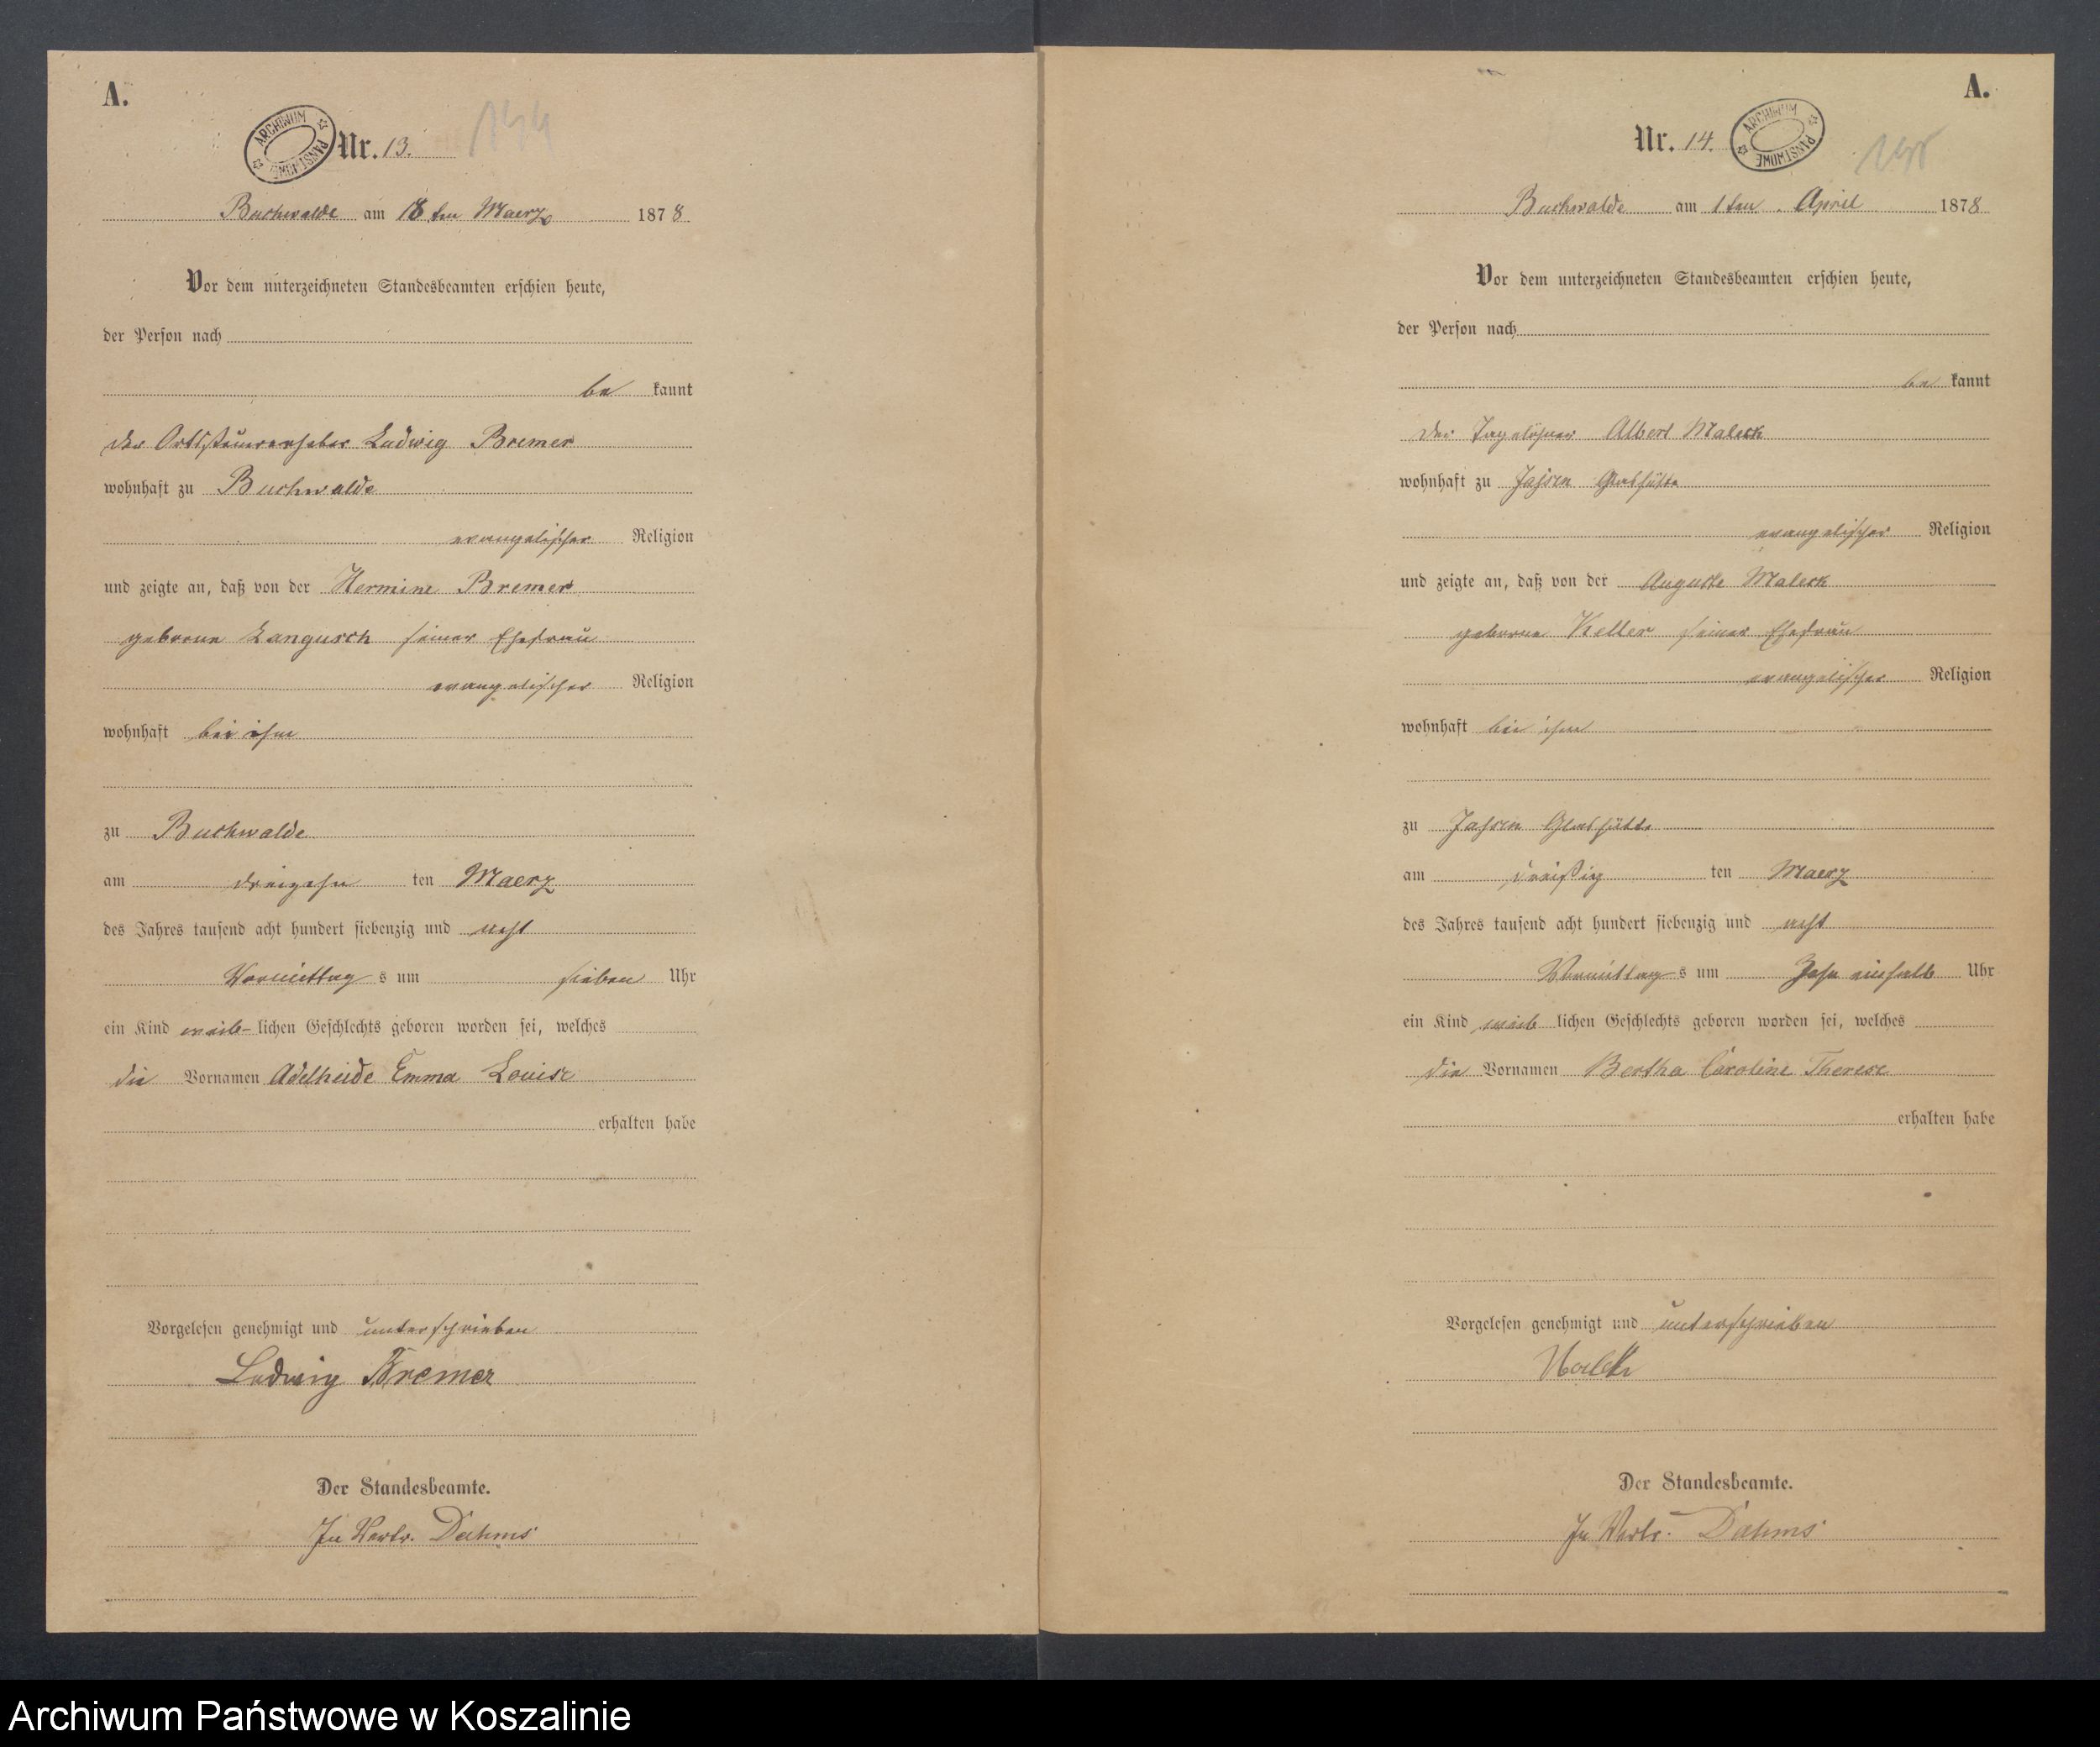 A.
ARCHIWUM PAŃSTWOWE
Nr. 13.
Buchwalde am 18 ten Maerz 1878
Vor dem unterzeichneten Standesbeamten erschien heute,
der Person nach
be kannt
der Ortssteuererheber Ludwig Bremer
wohnhaft zu Buchwalde
evangelischer Religion
und zeigte an, daß von der Hermine Bremer
geborne Langusch seiner Ehefrau
evangelischer Religion
wohnhaft bei ihm
zu Buchwalde
am dreizehn ten Maerz
des Jahres tausend acht hundert siebenzig und acht
Vormittag s um sieben Uhr
ein Kind weib- lichen Geschlechts geboren worden sei, welches
die Vornamen Adelheide Emma Louise
erhalten habe
Vorgelesen genehmigt und unterschrieben
Ludwig Bremer
Der Standesbeamte.
In Vertr. Dahms
A.
Nr. 14.
ARCHIWUM PAŃSTWOWE
Buchwalde am 1 ten April 1878
Vor dem unterzeichneten Standesbeamten erschien heute,
der Person nach
be kannt
Der Tagelöhner Albert Maleck
wohnhaft zu Jassen Glashütte
evangelischer Religion
und zeigte an, daß von der Auguste Maleck
geborne Keller seiner Ehefrau
evangelischer Religion
wohnhaft bei ihm
zu Jassen Glashütte
am dreißig ten Maerz
des Jahres tausend acht hundert siebenzig und acht
Vormittag s um Zehn einhalb Uhr
ein Kind weib lichen Geschlechts geboren worden sei, welches
die Vornamen Bertha Caroline Therese
erhalten habe
Vorgelesen genehmigt und unterschrieben
Der Standesbeamte.
In Vertr. Dahms
Archiwum Państwowe w Koszalinie